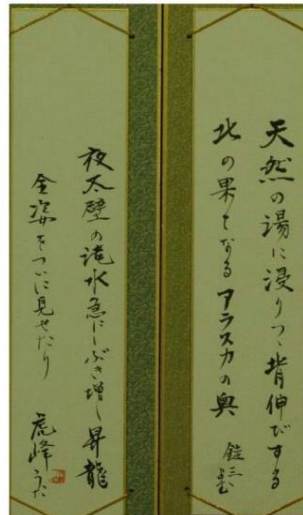 天然の湯に浸りつゝ背伸びする
北の果てなるアラスカの奥
鎧三
夜太壁の滝水急にしぶき増し昇龍
全姿をついに見せたり
虎峰うた